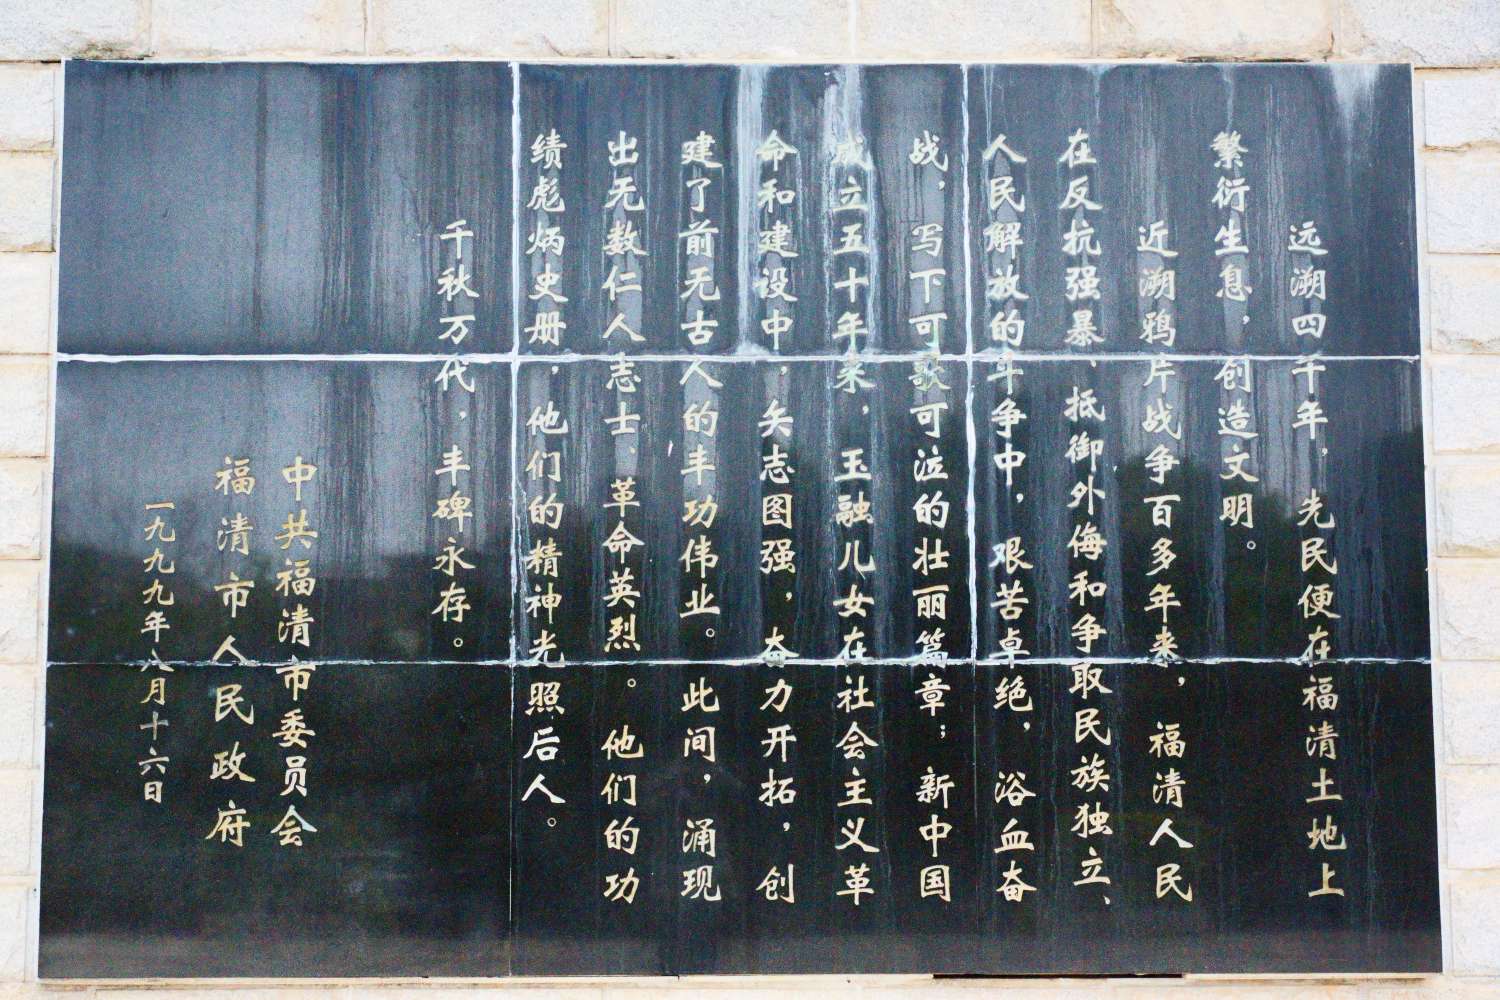 远溯四千年，先民便在福清土地上
繁衍生息，创造文明。
近溯鸦片战争百多年来，福清人民
在反抗强暴、抵御外侮和争取民族独立、
人民解放的斗争中，艰苦卓绝，浴血奋
战，写下可歌可泣的壮丽篇章；新中国
成立五十年来，玉融儿女在社会主义革
命和建设中，矢志图强，奋力开拓，创
建了前无古人的丰功伟业。此间，涌现
出无数仁人志士、革命英烈。他们的功
绩彪炳史册，他们的精神光照后人。
千秋万代，丰碑永存。
中共福清市委员会
福清市人民政府
一九九九年八月十六日